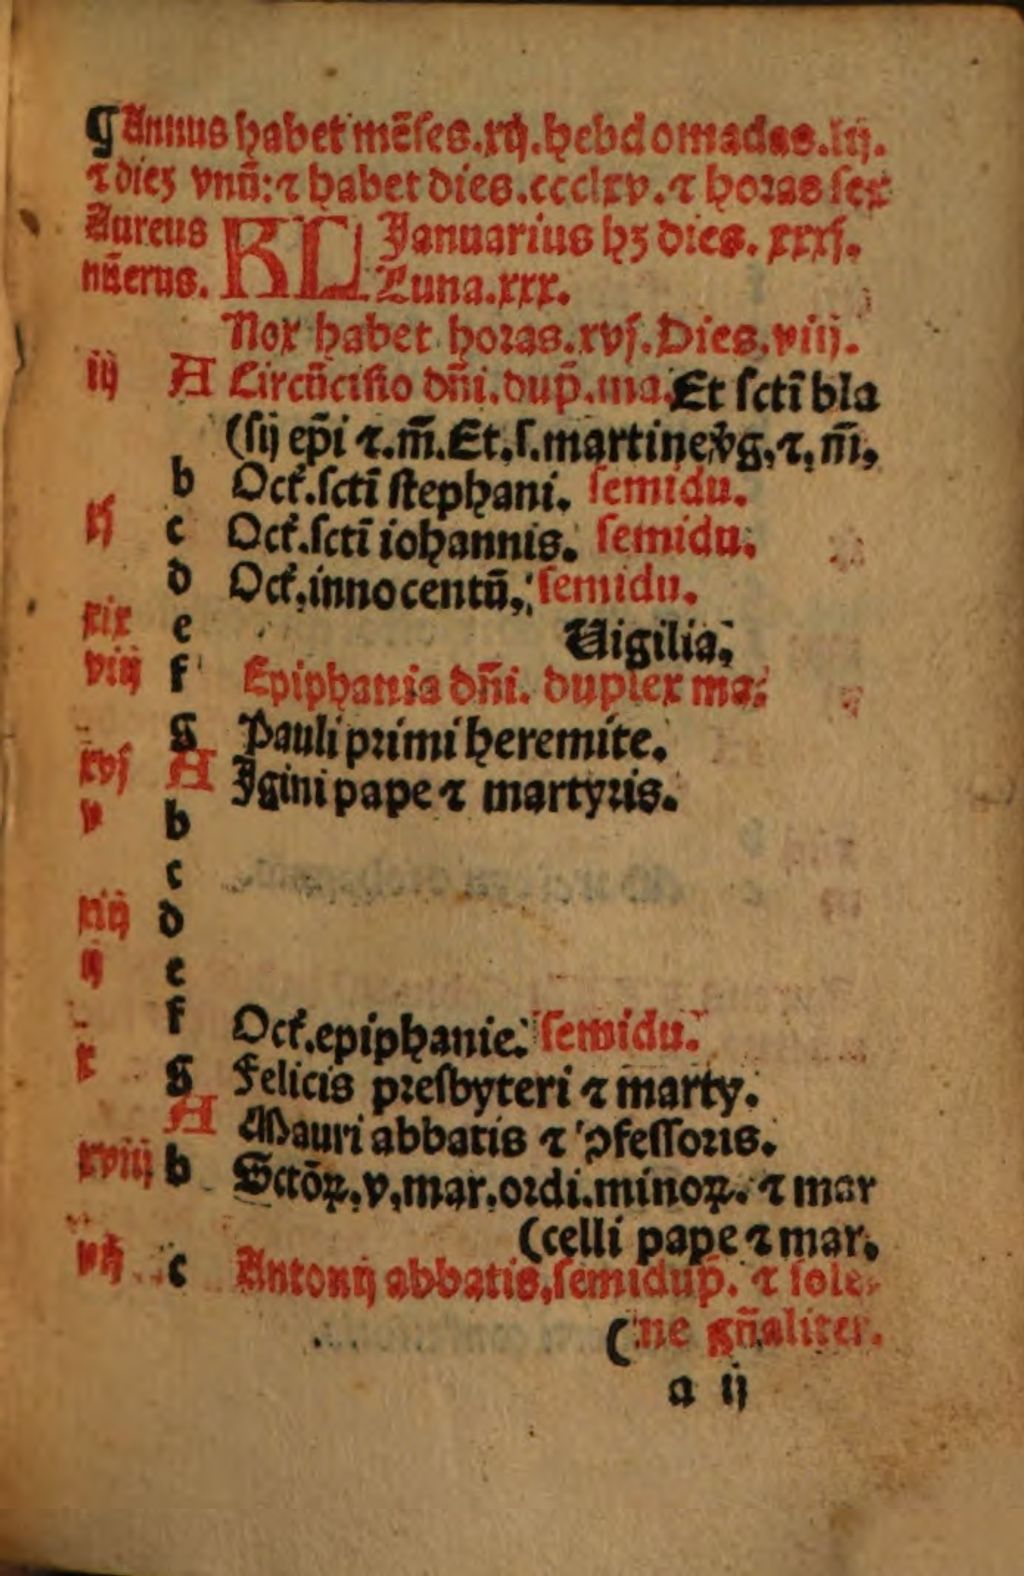 ¶ Annus habet mēses.xij.hebdomadas.lij.
⁊ diez vnū:⁊ habet dies.ccclxv.⁊ horas sex
Aureus KL Januarius hz dies. xxxj.
nūerus. Luna.xxx.
Nox habet horas.xvj.Dies.viij.
iij A Circūcisio dñi.dup̄.ma.Et sctī bla
(sij ep̄i ⁊.m̄.Et.s.martine v̄g,⁊,m̄,
b Oct̄.sctī stephani. semidu.
xj c Oct̄.sctī iohannis. semidu.
d Oct̄.innocentū, semidu.
xix e Uigilia.
viij f Epiphania dñi. duplex ma.
g Pauli primi heremite.
xvj A Igini pape ⁊ martyris.
v b
c
xiij d
ij e
f Oct̄.epiphanie. semidu.
x g Felicis presbyteri ⁊ marty.
A Mauri abbatis ⁊ ꝯfessoris.
xviij b Sctōꝝ.v,mar.ordi.minoꝝ. ⁊ mar
(celli pape ⁊ mar.
vij c Antonij abbatis,semidup̄. ⁊ sole-
(ne gñaliter.
a ij